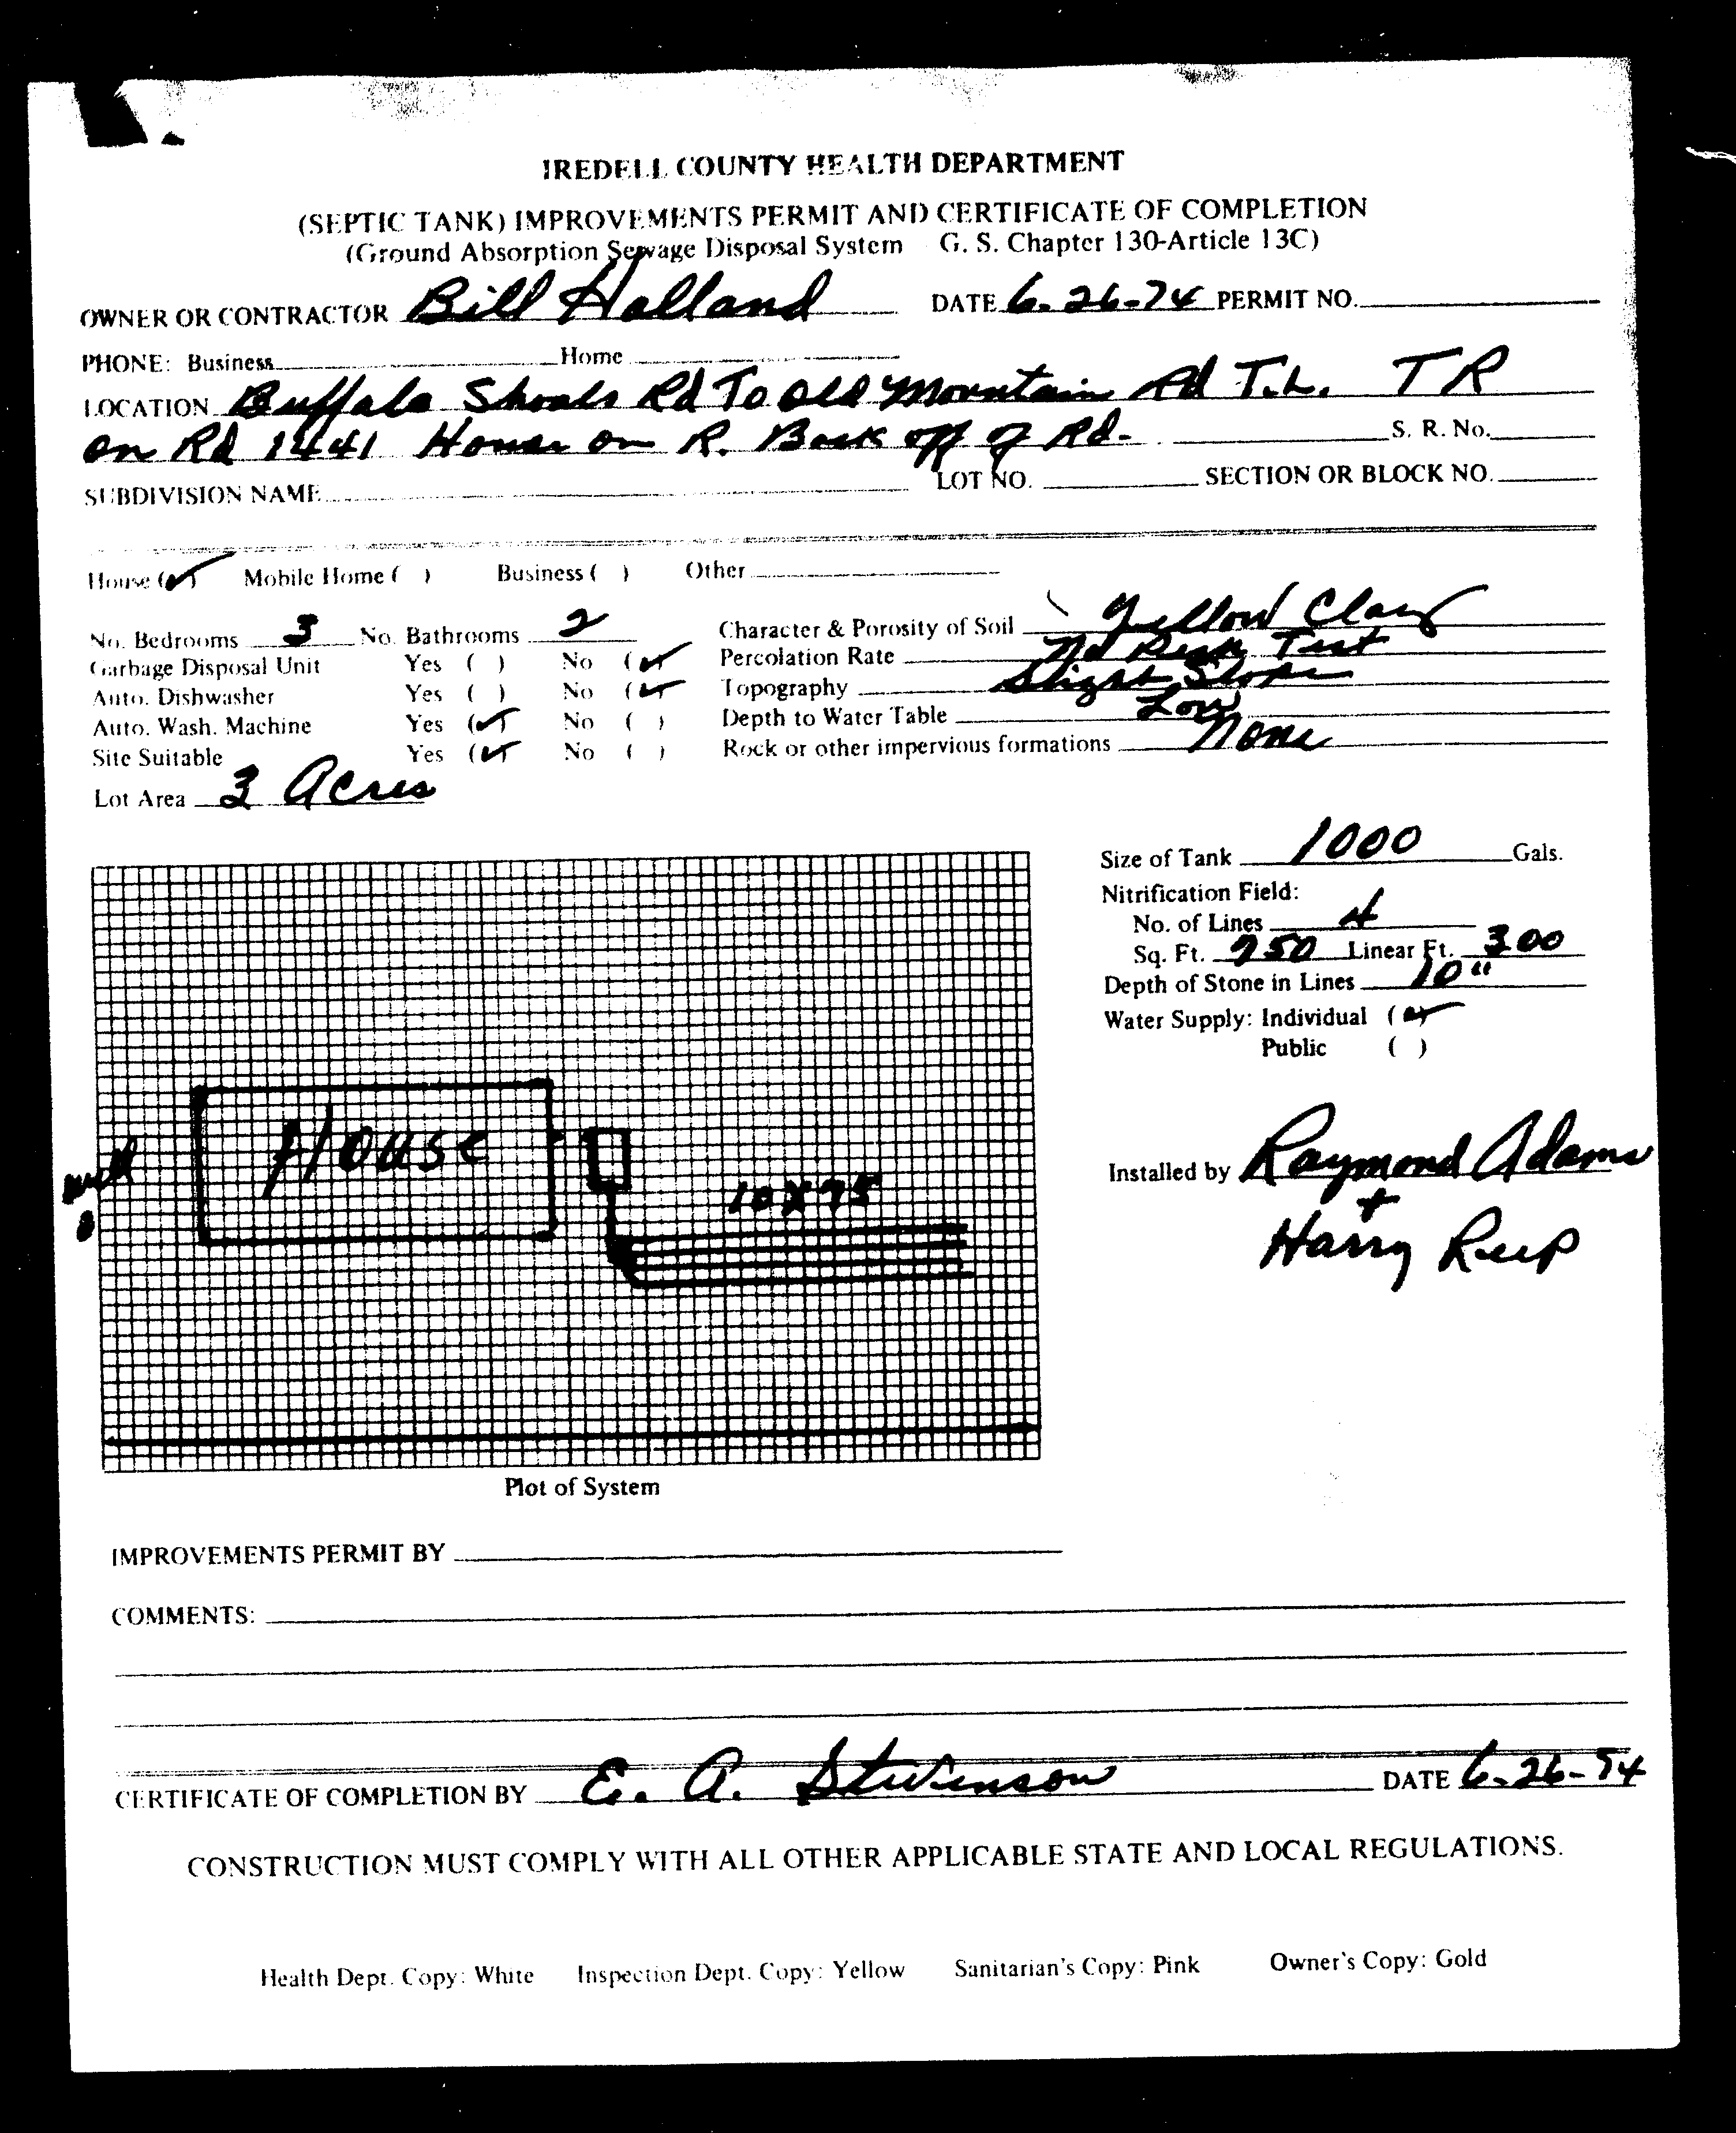 IREDELL COUNTY HEALTH DEPARTMENT
(SEPTIC TANK) IMPROVEMENTS PERMIT AND CERTIFICATE OF COMPLETION
(Ground Absorption Sewage Disposal System G. S. Chapter 130-Article 13C)
OWNER OR CONTRACTOR Bill Holland DATE 6-26-74 PERMIT NO.
PHONE: Business Home
LOCATION Buffalo Shoals Rd To Old Mountain Rd T.L. TR
on Rd 1441 House on R. Back off of Rd. S. R. No.
SUBDIVISION NAME LOT NO. SECTION OR BLOCK NO.
House (✓) Mobile Home ( ) Business ( ) Other
No. Bedrooms 3 No. Bathrooms 2 Character & Porosity of Soil Yellow Clay
Garbage Disposal Unit Yes ( ) No (✓) Percolation Rate No Perk Test
Auto. Dishwasher Yes ( ) No (✓) Topography Slight Slope
Auto. Wash. Machine Yes (✓) No ( ) Depth to Water Table Low
Site Suitable Yes (✓) No ( ) Rock or other impervious formations None
Lot Area 3 Acres
Size of Tank 1000 Gals.
Nitrification Field:
No. of Lines 4
Sq. Ft. 950 Linear Ft. 300
Depth of Stone in Lines 10"
Water Supply: Individual (✓)
Public ( )
House
well
10 X 75
Installed by Raymond Adams
+
Harry Reep
Plot of System
IMPROVEMENTS PERMIT BY
COMMENTS:
CERTIFICATE OF COMPLETION BY E. A. Stevenson DATE 6-26-74
CONSTRUCTION MUST COMPLY WITH ALL OTHER APPLICABLE STATE AND LOCAL REGULATIONS.
Health Dept. Copy: White Inspection Dept. Copy: Yellow Sanitarian's Copy: Pink Owner's Copy: Gold